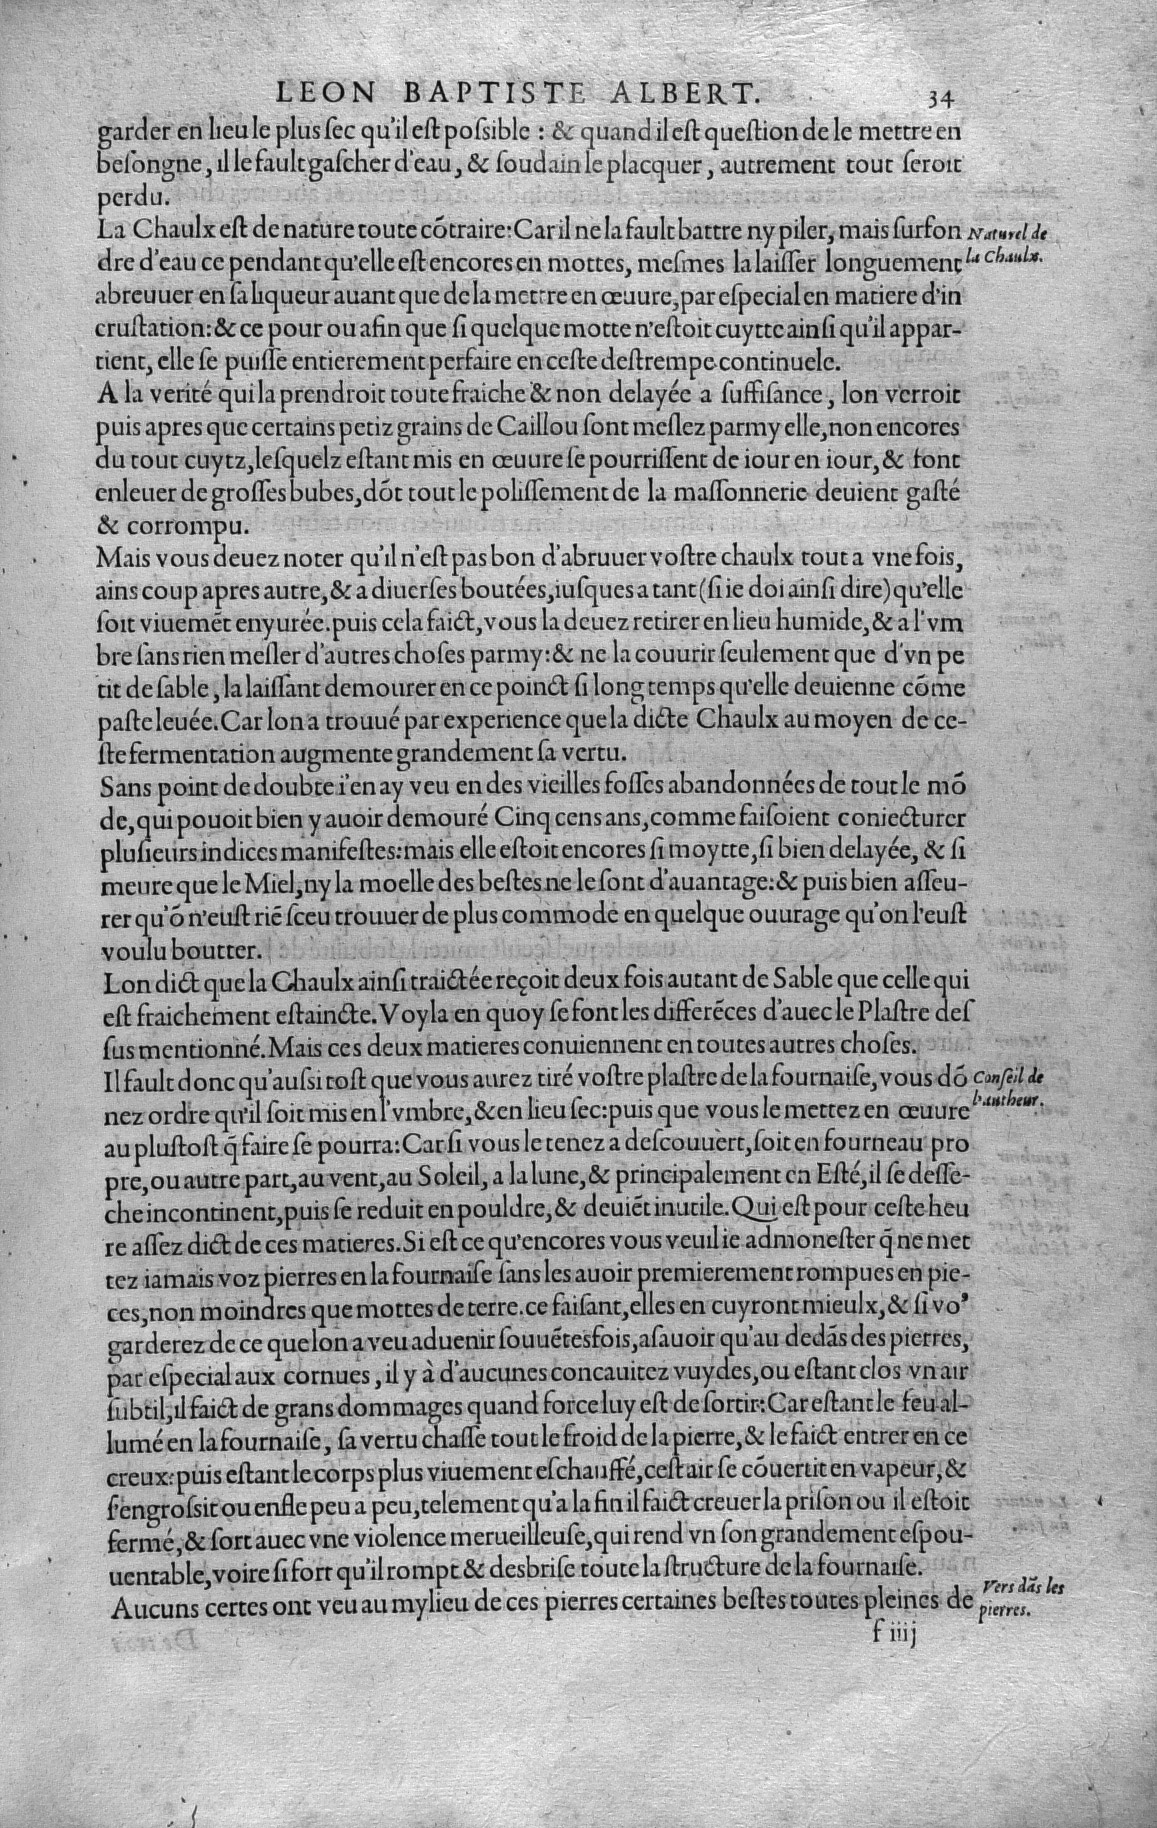 LEON BAPTISTE ALBERT. 34
garder en lieu le plus sec qu'il est possible : & quand il est question de le mettre en
besongne, il le fault gascher d'eau, & soudain le placquer, autrement tout seroit
perdu.
La Chaulx est de nature toute cõtraire: Car il ne la fault battre ny piler, mais surfon
Naturel de
la Chaulx.
dre d'eau ce pendant qu'elle est encores en mottes, mesmes la laisser longuement
abreuuer en sa liqueur auant que de la mettre en œuure, par especial en matiere d'in
crustation: & ce pour ou afin que si quelque motte n'estoit cuytte ainsi qu'il appar-
tient, elle se puisse entierement perfaire en ceste destrempe continuele.
A la verité qui la prendroit toute fraiche & non delayée a suffisance, lon verroit
puis apres que certains petiz grains de Caillou sont meslez parmy elle, non encores
du tout cuytz, lesquelz estant mis en œuure se pourrissent de iour en iour, & font
enleuer de grosses bubes, dõt tout le polissement de la massonnerie deuient gasté
& corrompu.
Mais vous deuez noter qu'il n'est pas bon d'abruuer vostre chaulx tout a vne fois,
ains coup apres autre, & a diuerses boutées, iusques a tant (si ie doi ainsi dire) qu'elle
soit viuemẽt enyurée. puis cela faict, vous la deuez retirer en lieu humide, & a l'vm
bre sans rien mesler d'autres choses parmy: & ne la couurir seulement que d'vn pe
tit de sable, la laissant demourer en ce poinct si long temps qu'elle deuienne cõme
paste leuée. Car lon a trouué par experience que la dicte Chaulx au moyen de ce-
ste fermentation augmente grandement sa vertu.
Sans point de doubte i'en ay veu en des vieilles fosses abandonnées de tout le mõ
de, qui pouoit bien y auoir demouré Cinq cens ans, comme faisoient coniecturer
plusieurs indices manifestes: mais elle estoit encores si moytte, si bien delayée, & si
meure que le Miel, ny la moelle des bestes ne le sont d'auantage: & puis bien asseu-
rer qu'õ n'eust riẽ sceu trouuer de plus commode en quelque ouurage qu'on l'eust
voulu boutter.
Lon dict que la Chaulx ainsi traictée reçoit deux fois autant de Sable que celle qui
est fraichement estaincte. Voyla en quoy se font les differẽces d'auec le Plastre des
sus mentionné. Mais ces deux matieres conuiennent en toutes autres choses.
Il fault donc qu'aussi tost que vous aurez tiré vostre plastre de la fournaise, vous dõ
Conseil de
l'autheur.
nez ordre qu'il soit mis en l'vmbre, & en lieu sec: puis que vous le mettez en œuure
au plustost q̃ faire se pourra: Car si vous le tenez a descouuert, soit en fourneau pro
pre, ou autre part, au vent, au Soleil, a la lune, & principalement en Esté, il se desse-
che incontinent, puis se reduit en pouldre, & deuiẽt inutile. Qui est pour ceste heu
re assez dict de ces matieres. Si est ce qu'encores vous veuil ie admonester q̃ ne met
tez iamais voz pierres en la fournaise sans les auoir premierement rompues en pie-
ces, non moindres que mottes de terre. ce faisant, elles en cuyront mieulx, & si vo⁹
garderez de ce que lon a veu aduenir souuẽtesfois, asauoir qu'au dedãs des pierres,
par especial aux cornues, il y à d'aucunes concauitez vuydes, ou estant clos vn air
subtil, il faict de grans dommages quand force luy est de sortir: Car estant le feu al-
lumé en la fournaise, sa vertu chasse tout le froid de la pierre, & le faict entrer en ce
creux: puis estant le corps plus viuement eschauffé, cest air se cõuertit en vapeur, &
s'engrossit ou enfle peu a peu, telement qu'a la fin il faict creuer la prison ou il estoit
fermé, & sort auec vne violence merueilleuse, qui rend vn son grandement espou-
uentable, voire si fort qu'il rompt & desbrise toute la structure de la fournaise.
Aucuns certes ont veu au mylieu de ces pierres certaines bestes toutes pleines de
Vers dãs les
pierres.
f iiij